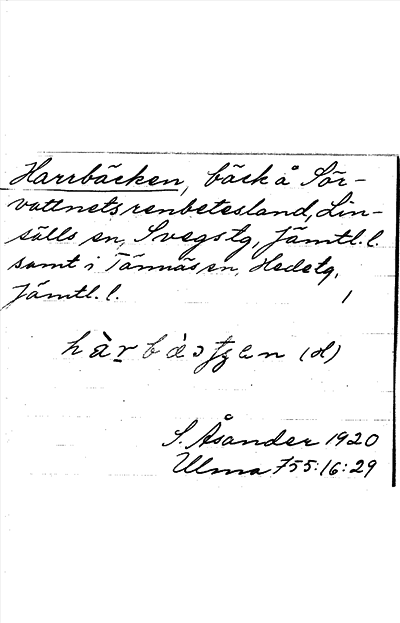 Harrbäcken, bäck å Sör-
vattnets renbetesland, Lin-
sälls sn, Svegs tg, Jämtl. l.
samt i Tännäs sn, Hede tg,
Jämtl. l. 1
(H)
S. Åsander 1920
Ulma 755:16:29